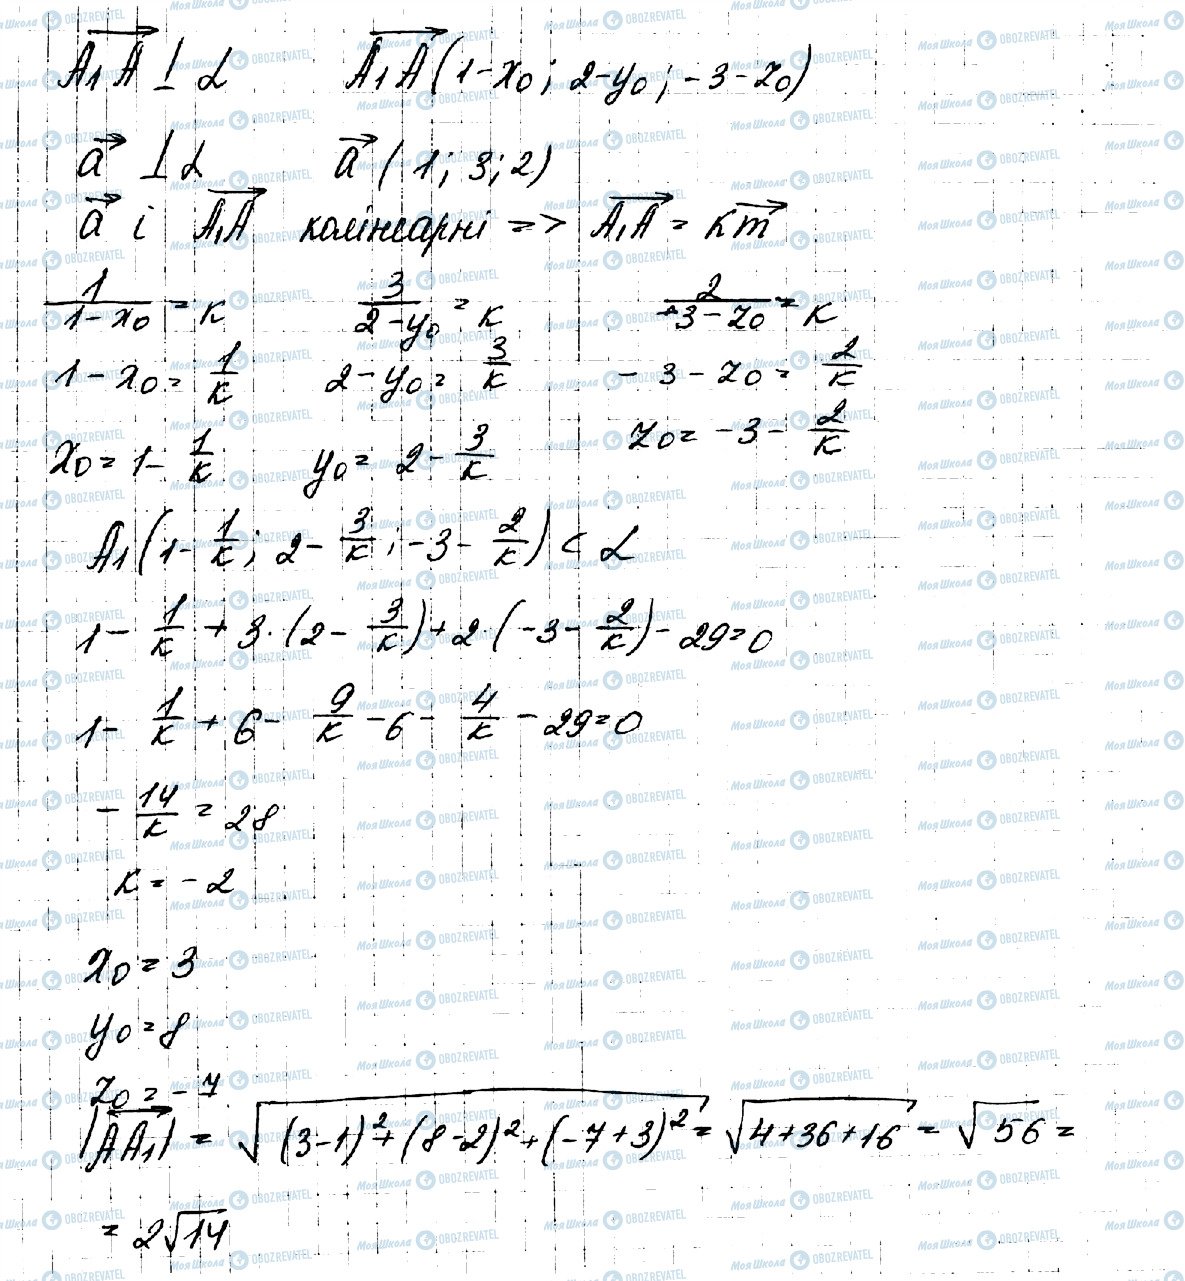 A₁A⃗ ⊥ α   A₁A⃗ (1-x₀; 2-y₀; -3-z₀)
a⃗ ⊥ α   a⃗ (1; 3; 2)
a⃗ і A₁A⃗ колінеарні => A₁A⃗ = km⃗
1/(1-x₀) = k   3/(2-y₀) = k   2/(-3-z₀) = k
1-x₀ = 1/k   2-y₀ = 3/k   -3-z₀ = 2/k
x₀ = 1 - 1/k   y₀ = 2 - 3/k   z₀ = -3 - 2/k
A₁(1 - 1/k; 2 - 3/k; -3 - 2/k) ⊂ α
1 - 1/k + 3·(2 - 3/k) + 2·(-3 - 2/k) - 29 = 0
1 - 1/k + 6 - 9/k - 6 - 4/k - 29 = 0
- 14/k = 28
k = -2
x₀ = 3
y₀ = 8
z₀ = -7
|AA₁⃗| = √((3-1)² + (8-2)² + (-7+3)²) = √(4+36+16) = √56 =
= 2√14
Моя Школа OBOZREVATEL